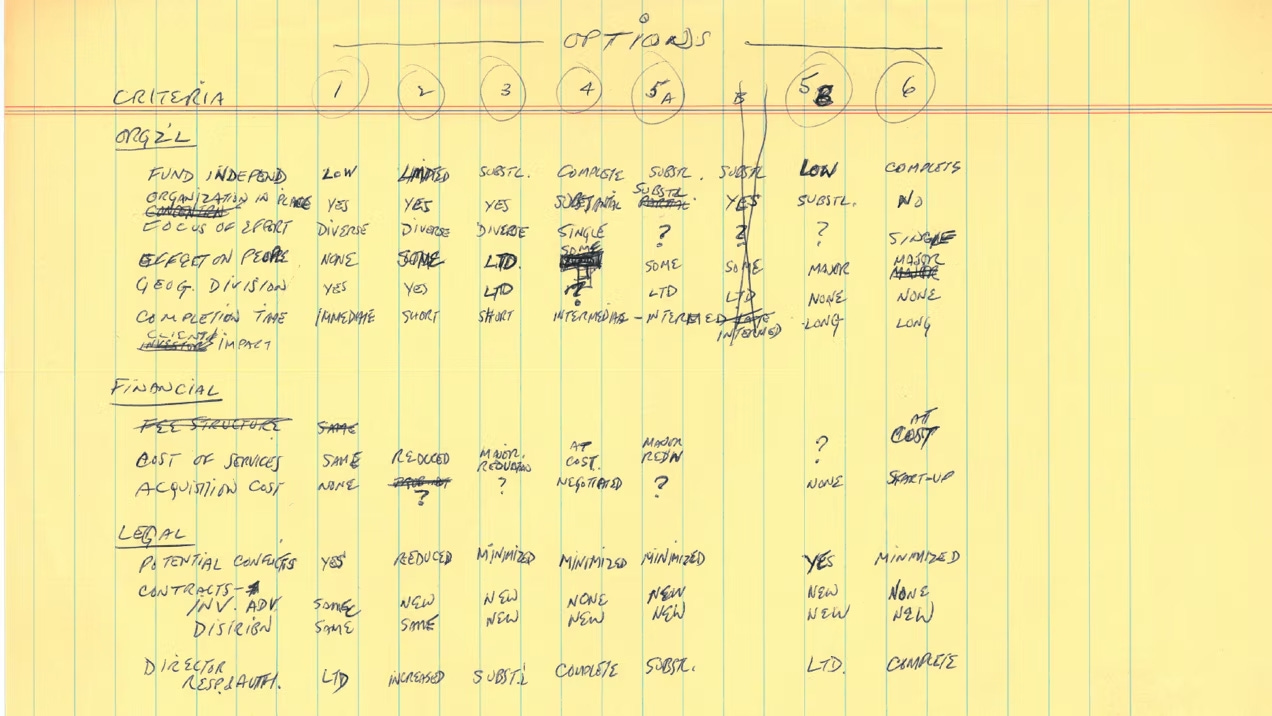 OPTIONS
CRITERIA 1 2 3 4 5A B 5B 6
ORGZ'L
FUND INDEPEND LOW LIMITED SUBSTL. COMPLETE SUBSTL. SUBSTL LOW COMPLETE
ORGANIZATION IN PLACE YES YES YES SUBSTANTIAL SUBSTL. YES SUBSTL. NO
FOCUS OF EFFORT DIVERSE DIVERSE DIVERSE SINGLE ? ? ? SINGLE
EFFECT ON PEOPLE NONE SOME LTD. SOME SOME SOME MAJOR MAJOR
GEOG. DIVISION YES YES LTD ? LTD LTD NONE NONE
COMPLETION TIME IMMEDIATE SHORT SHORT INTERMEDIATE - INTERMED INTERMED LONG LONG
CLIENT
INVESTOR IMPACT
FINANCIAL
FEE STRUCTURE SAME
COST OF SERVICES SAME REDUCED MAJOR. REDUCTION AT COST. MAJOR REDN ? AT COST
ACQUISITION COST NONE ? ? NEGOTIATED ? NONE START-UP
LEGAL
POTENTIAL CONFLICTS YES REDUCED MINIMIZED MINIMIZED MINIMIZED YES MINIMIZED
CONTRACTS-
INV. ADV. SAME NEW NEW NONE NEW NEW NONE
DISTRIBN SAME SAME NEW NEW NEW NEW NEW
DIRECTOR
RESP. & AUTH. LTD INCREASED SUBST'L COMPLETE SUBSTL. LTD. COMPLETE